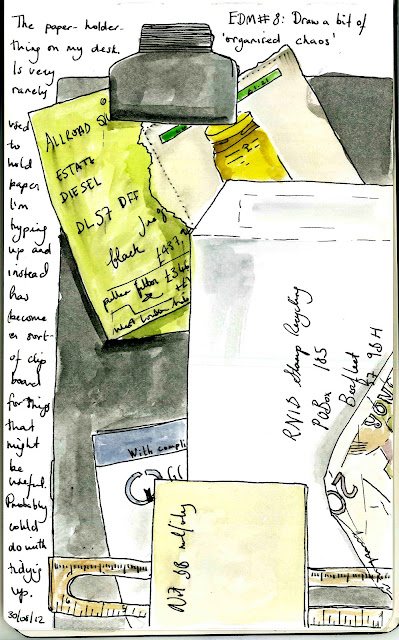 The paper-holder-
thing on my desk.
Is very
rarely
used
to
hold
paper
I'm
typing
up and
instead
has
become
a sort-
of clip
board
for things
that
might
be
useful.
Probably
could
do with
tidying
up.
30/08/12
EDM#8: Draw a bit of
'organised chaos'
ALLROAD
ESTATE
DIESEL
DL57 DFF
black
pollen filter
With compli
RNID Stamp Recycling
PO Box 185
Benfleet
9BH
20